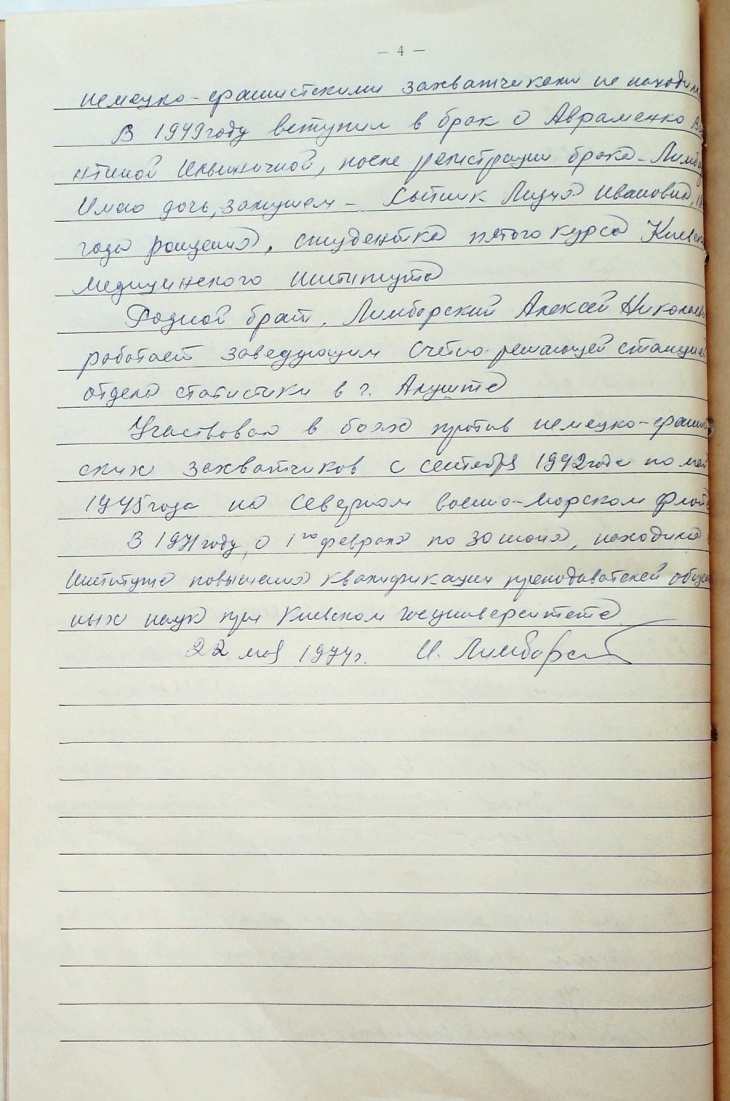 — 4 —
немецко-фашистскими захватчиками не находил
В 1949 году вступил в брак с Авраменко В
нтиной Ильиничной, после регистрации брака – Лимбо
Имею дочь, замужем – Хытик Лидия Ивановна, 19
года рождения, студентка пятого курса Киевск
медицинского института
Родной брат, Лимборский Алексей Николаев
работает заведующим счётно-решающей станцией
отдела статистики в г. Алуште
Участвовал в боях против немецко-фашист
ских захватчиков с сентября 1942 года по май
1945 года на Северном военно-морском флоте
В 1971 году, с 1го февраля по 30 июня, находился
институте повышения квалификации преподавателей общес
ных наук при Киевском госуниверситете
22 мая 1974г. И. Лимборский